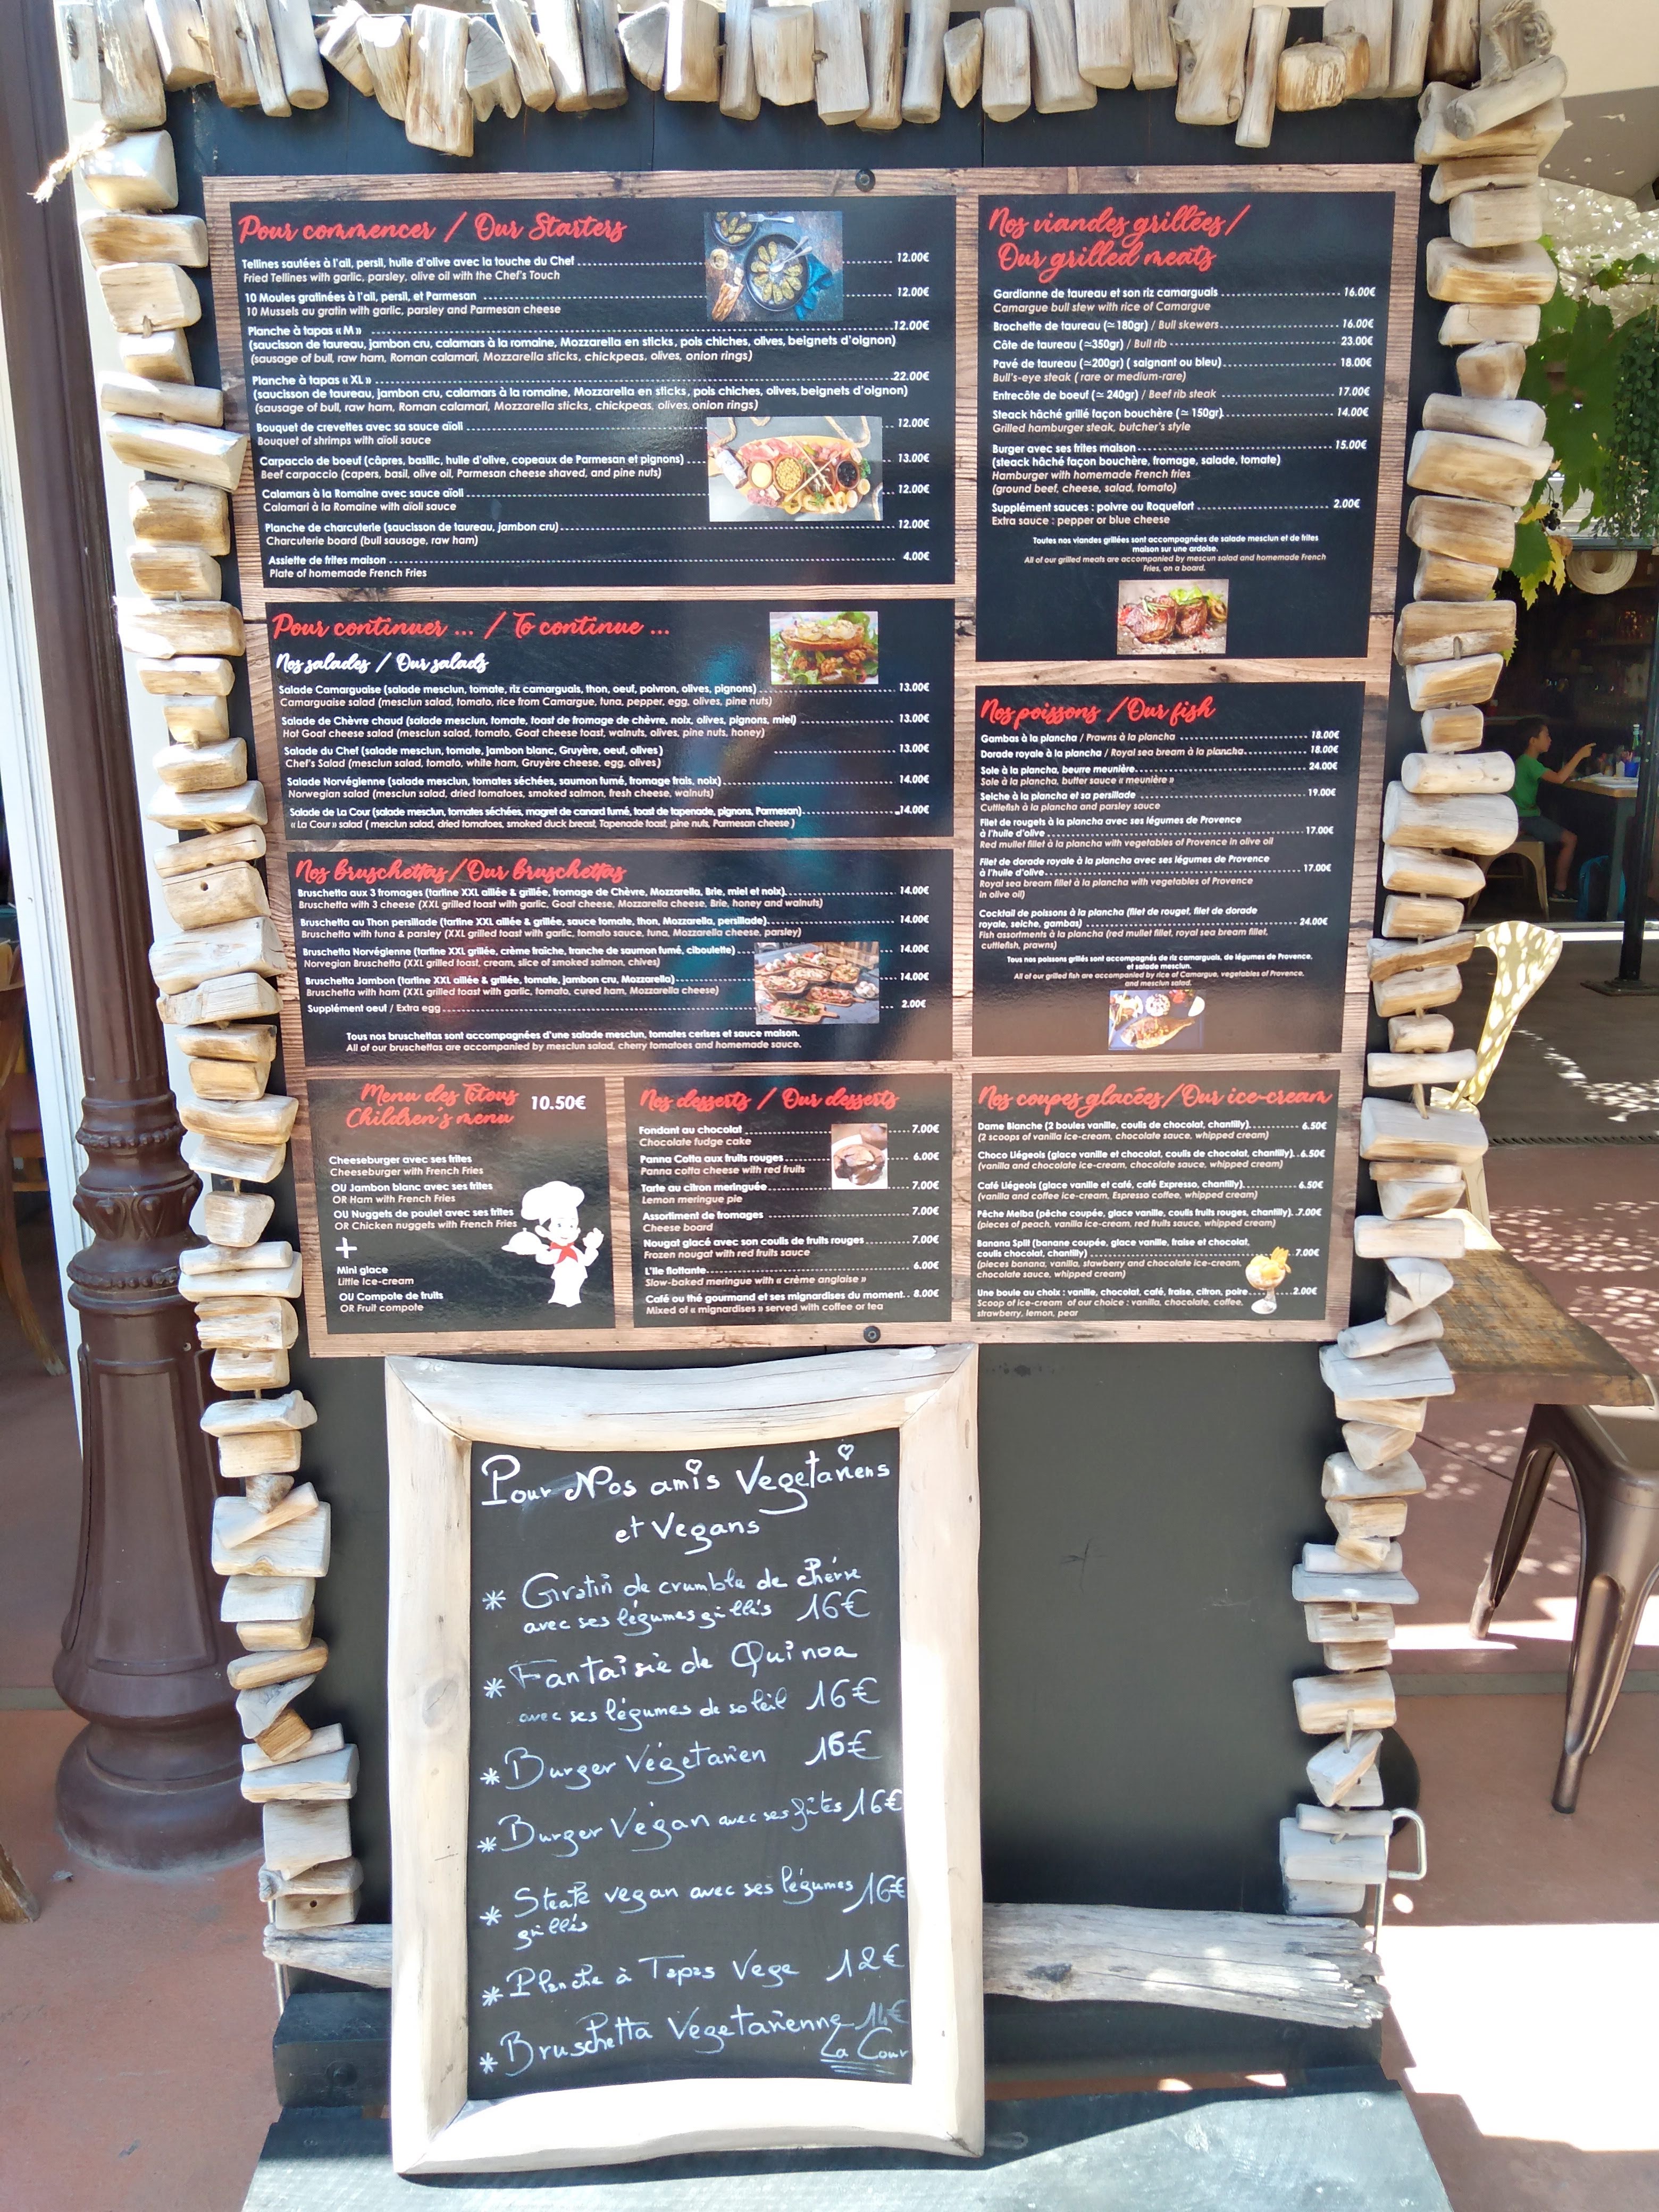 Pour commencer / Our Starters
Tellines sautées à l'ail, persil, huile d'olive avec la touche du Chef 12.00€
Fried Tellines with garlic, parsley, olive oil with the Chef's Touch
10 Moules gratinées à l'ail, persil, et Parmesan 12.00€
10 Mussels au gratin with garlic, parsley and Parmesan cheese
Planche à tapas « M » 12.00€
(saucisson de taureau, jambon cru, calamars à la romaine, Mozzarella en sticks, pois chiches, olives, beignets d'oignon)
(sausage of bull, raw ham, Roman calamari, Mozzarella sticks, chickpeas, olives, onion rings)
Planche à tapas « XL » 22.00€
(saucisson de taureau, jambon cru, calamars à la romaine, Mozzarella en sticks, pois chiches, olives, beignets d'oignon)
(sausage of bull, raw ham, Roman calamari, Mozzarella sticks, chickpeas, olives, onion rings)
Bouquet de crevettes avec sa sauce aïoli 12.00€
Bouquet of shrimps with aïoli sauce
Carpaccio de boeuf (câpres, basilic, huile d'olive, copeaux de Parmesan et pignons) 13.00€
Beef carpaccio (capers, basil, olive oil, Parmesan cheese shaved, and pine nuts)
Calamars à la Romaine avec sauce aïoli 12.00€
Calamari à la Romaine with aïoli sauce
Planche de charcuterie (saucisson de taureau, jambon cru) 12.00€
Charcuterie board (bull sausage, raw ham)
Assiette de frites maison 4.00€
Plate of homemade French Fries
Pour continuer ... / To continue ...
Nos salades / Our salads
Salade Camarguaise (salade mesclun, tomate, riz camarguais, thon, oeuf, poivron, olives, pignons) 13.00€
Camarguaise salad (mesclun salad, tomato, rice from Camargue, tuna, pepper, egg, olives, pine nuts)
Salade de Chèvre chaud (salade mesclun, tomate, toast de fromage de chèvre, noix, olives, pignons, miel) 13.00€
Hot Goat cheese salad (mesclun salad, tomato, Goat cheese toast, walnuts, olives, pine nuts, honey)
Salade du Chef (salade mesclun, tomate, jambon blanc, Gruyère, oeuf, olives) 13.00€
Chef's Salad (mesclun salad, tomato, white ham, Gruyère cheese, egg, olives)
Salade Norvégienne (salade mesclun, tomates séchées, saumon fumé, fromage frais, noix) 14.00€
Norwegian salad (mesclun salad, dried tomatoes, smoked salmon, fresh cheese, walnuts)
Salade de La Cour (salade mesclun, tomates séchées, magret de canard fumé, toast de tapenade, pignons, Parmesan) 14.00€
« La Cour » salad ( mesclun salad, dried tomatoes, smoked duck breast, Tapenade toast, pine nuts, Parmesan cheese )
Nos bruschettas / Our bruschettas
Bruschetta aux 3 fromages (tartine XXL aillée & grillée, fromage de Chèvre, Mozzarella, Brie, miel et noix) 14.00€
Bruschetta with 3 cheese (XXL grilled toast with garlic, Goat cheese, Mozzarella cheese, Brie, honey and walnuts)
Bruschetta au Thon persillade (tartine XXL aillée & grillée, sauce tomate, thon, Mozzarella, persillade) 14.00€
Bruschetta with tuna & parsley (XXL grilled toast with garlic, tomato sauce, tuna, Mozzarella cheese, parsley)
Bruschetta Norvégienne (tartine XXL grillée, crème fraîche, tranche de saumon fumé, ciboulette) 14.00€
Norvegian Bruschetta (XXL grilled toast, cream, slice of smoked salmon, chives)
Bruschetta Jambon (tartine XXL aillée & grillée, tomate, jambon cru, Mozzarella) 14.00€
Bruschetta with ham (XXL grilled toast with garlic, tomato, cured ham, Mozzarella cheese)
Supplément oeuf / Extra egg 2.00€
Tous nos bruschettas sont accompagnées d'une salade mesclun, tomates cerises et sauce maison.
All of our bruschettas are accompanied by mesclun salad, cherry tomatoes and homemade sauce.
Nos viandes grillées /
Our grilled meats
Gardianne de taureau et son riz camarguais 16.00€
Camargue bull stew with rice of Camargue
Brochette de taureau (≃180gr) / Bull skewers 16.00€
Côte de taureau (≃350gr) / Bull rib 23.00€
Pavé de taureau (≃200gr) ( saignant ou bleu) 18.00€
Bull's-eye steak ( rare or medium-rare)
Entrecôte de boeuf (≃ 240gr) / Beef rib steak 17.00€
Steack hâché grillé façon bouchère (≃ 150gr) 14.00€
Grilled hamburger steak, butcher's style
Burger avec ses frites maison 15.00€
(steack hâché façon bouchère, fromage, salade, tomate)
Hamburger with homemade French fries
(ground beef, cheese, salad, tomato)
Supplément sauces : poivre ou Roquefort 2.00€
Extra sauce : pepper or blue cheese
Toutes nos viandes grillées sont accompagnées de salade mesclun et de frites
maison sur une ardoise.
All of our grilled meats are accompanied by mescun salad and homemade French
Fries, on a board.
Nos poissons / Our fish
Gambas à la plancha / Prawns à la plancha 18.00€
Dorade royale à la plancha / Royal sea bream à la plancha 18.00€
Sole à la plancha, beurre meunière 24.00€
Sole à la plancha, butter sauce « meunière »
Seiche à la plancha et sa persillade 19.00€
Cuttlefish à la plancha and parsley sauce
Filet de rougets à la plancha avec ses légumes de Provence
à l'huile d'olive 17.00€
Red mullet fillet à la plancha with vegetables of Provence in olive oil
Filet de dorade royale à la plancha avec ses légumes de Provence
à l'huile d'olive 17.00€
Royal sea bream fillet à la plancha with vegetables of Provence
in olive oil)
Cocktail de poissons à la plancha (filet de rouget, filet de dorade
royale, seiche, gambas) 24.00€
Fish assortments à la plancha (red mullet fillet, royal sea bream fillet,
cuttlefish, prawns)
Tous nos poissons grillés sont accompagnés de riz camarguais, de légumes de Provence,
et salade mesclun.
All of our grilled fish are accompanied by rice of Camargue, vegetables of Provence,
and mesclun salad.
Menu des Titous
Children's menu 10.50€
Cheeseburger avec ses frites
Cheeseburger with French Fries
OU Jambon blanc avec ses frites
OR Ham with French Fries
OU Nuggets de poulet avec ses frites
OR Chicken nuggets with French Fries
+
Mini glace
Little Ice-cream
OU Compote de fruits
OR Fruit compote
Nos desserts / Our desserts
Fondant au chocolat 7.00€
Chocolate fudge cake
Panna Cotta aux fruits rouges 6.00€
Panna cotta cheese with red fruits
Tarte au citron meringuée 7.00€
Lemon meringue pie
Assortiment de fromages 7.00€
Cheese board
Nougat glacé avec son coulis de fruits rouges 7.00€
Frozen nougat with red fruits sauce
L'île flottante 6.00€
Slow-baked meringue with « crème anglaise »
Café ou thé gourmand et ses mignardises du moment 8.00€
Mixed of « mignardises » served with coffee or tea
Nos coupes glacées / Our ice-cream
Dame Blanche (2 boules vanille, coulis de chocolat, chantilly) 6.50€
(2 scoops of vanilla ice-cream, chocolate sauce, whipped cream)
Choco Liégeois (glace vanille et chocolat, coulis de chocolat, chantilly) 6.50€
(vanilla and chocolate ice-cream, chocolate sauce, whipped cream)
Café Liégeois (glace vanille et café, café Expresso, chantilly) 6.50€
(vanilla and coffee ice-cream, Espresso coffee, whipped cream)
Pêche Melba (pêche coupée, glace vanille, coulis fruits rouges, chantilly) 7.00€
(pieces of peach, vanilla ice-cream, red fruits sauce, whipped cream)
Banana Split (banane coupée, glace vanille, fraise et chocolat,
coulis chocolat, chantilly) 7.00€
(pieces banana, vanilla, stawberry and chocolate ice-cream,
chocolate sauce, whipped cream)
Une boule au choix : vanille, chocolat, café, fraise, citron, poire 2.00€
Scoop of ice-cream of our choice : vanilla, chocolate, coffee,
strawberry, lemon, pear
Pour Nos amis Vegetariens
et Vegans
* Gratin de crumble de chèvre
avec ses légumes grillés 16€
* Fantaisie de Quinoa
avec ses légumes de soleil 16€
* Burger Végetarien 16€
* Burger Végan avec ses frites 16€
* Steak vegan avec ses légumes 16€
grillés
* Planche à Tapas Vege 12€
* Bruschetta Vegetarienne 14€
La Cour